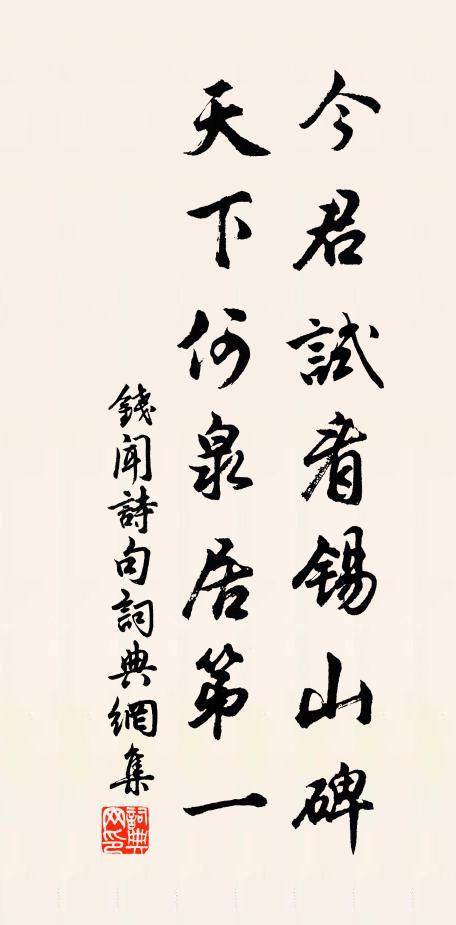 今君試看錫山碑
天下何泉居第一
錢聞詩句詞典網集
詞典网印